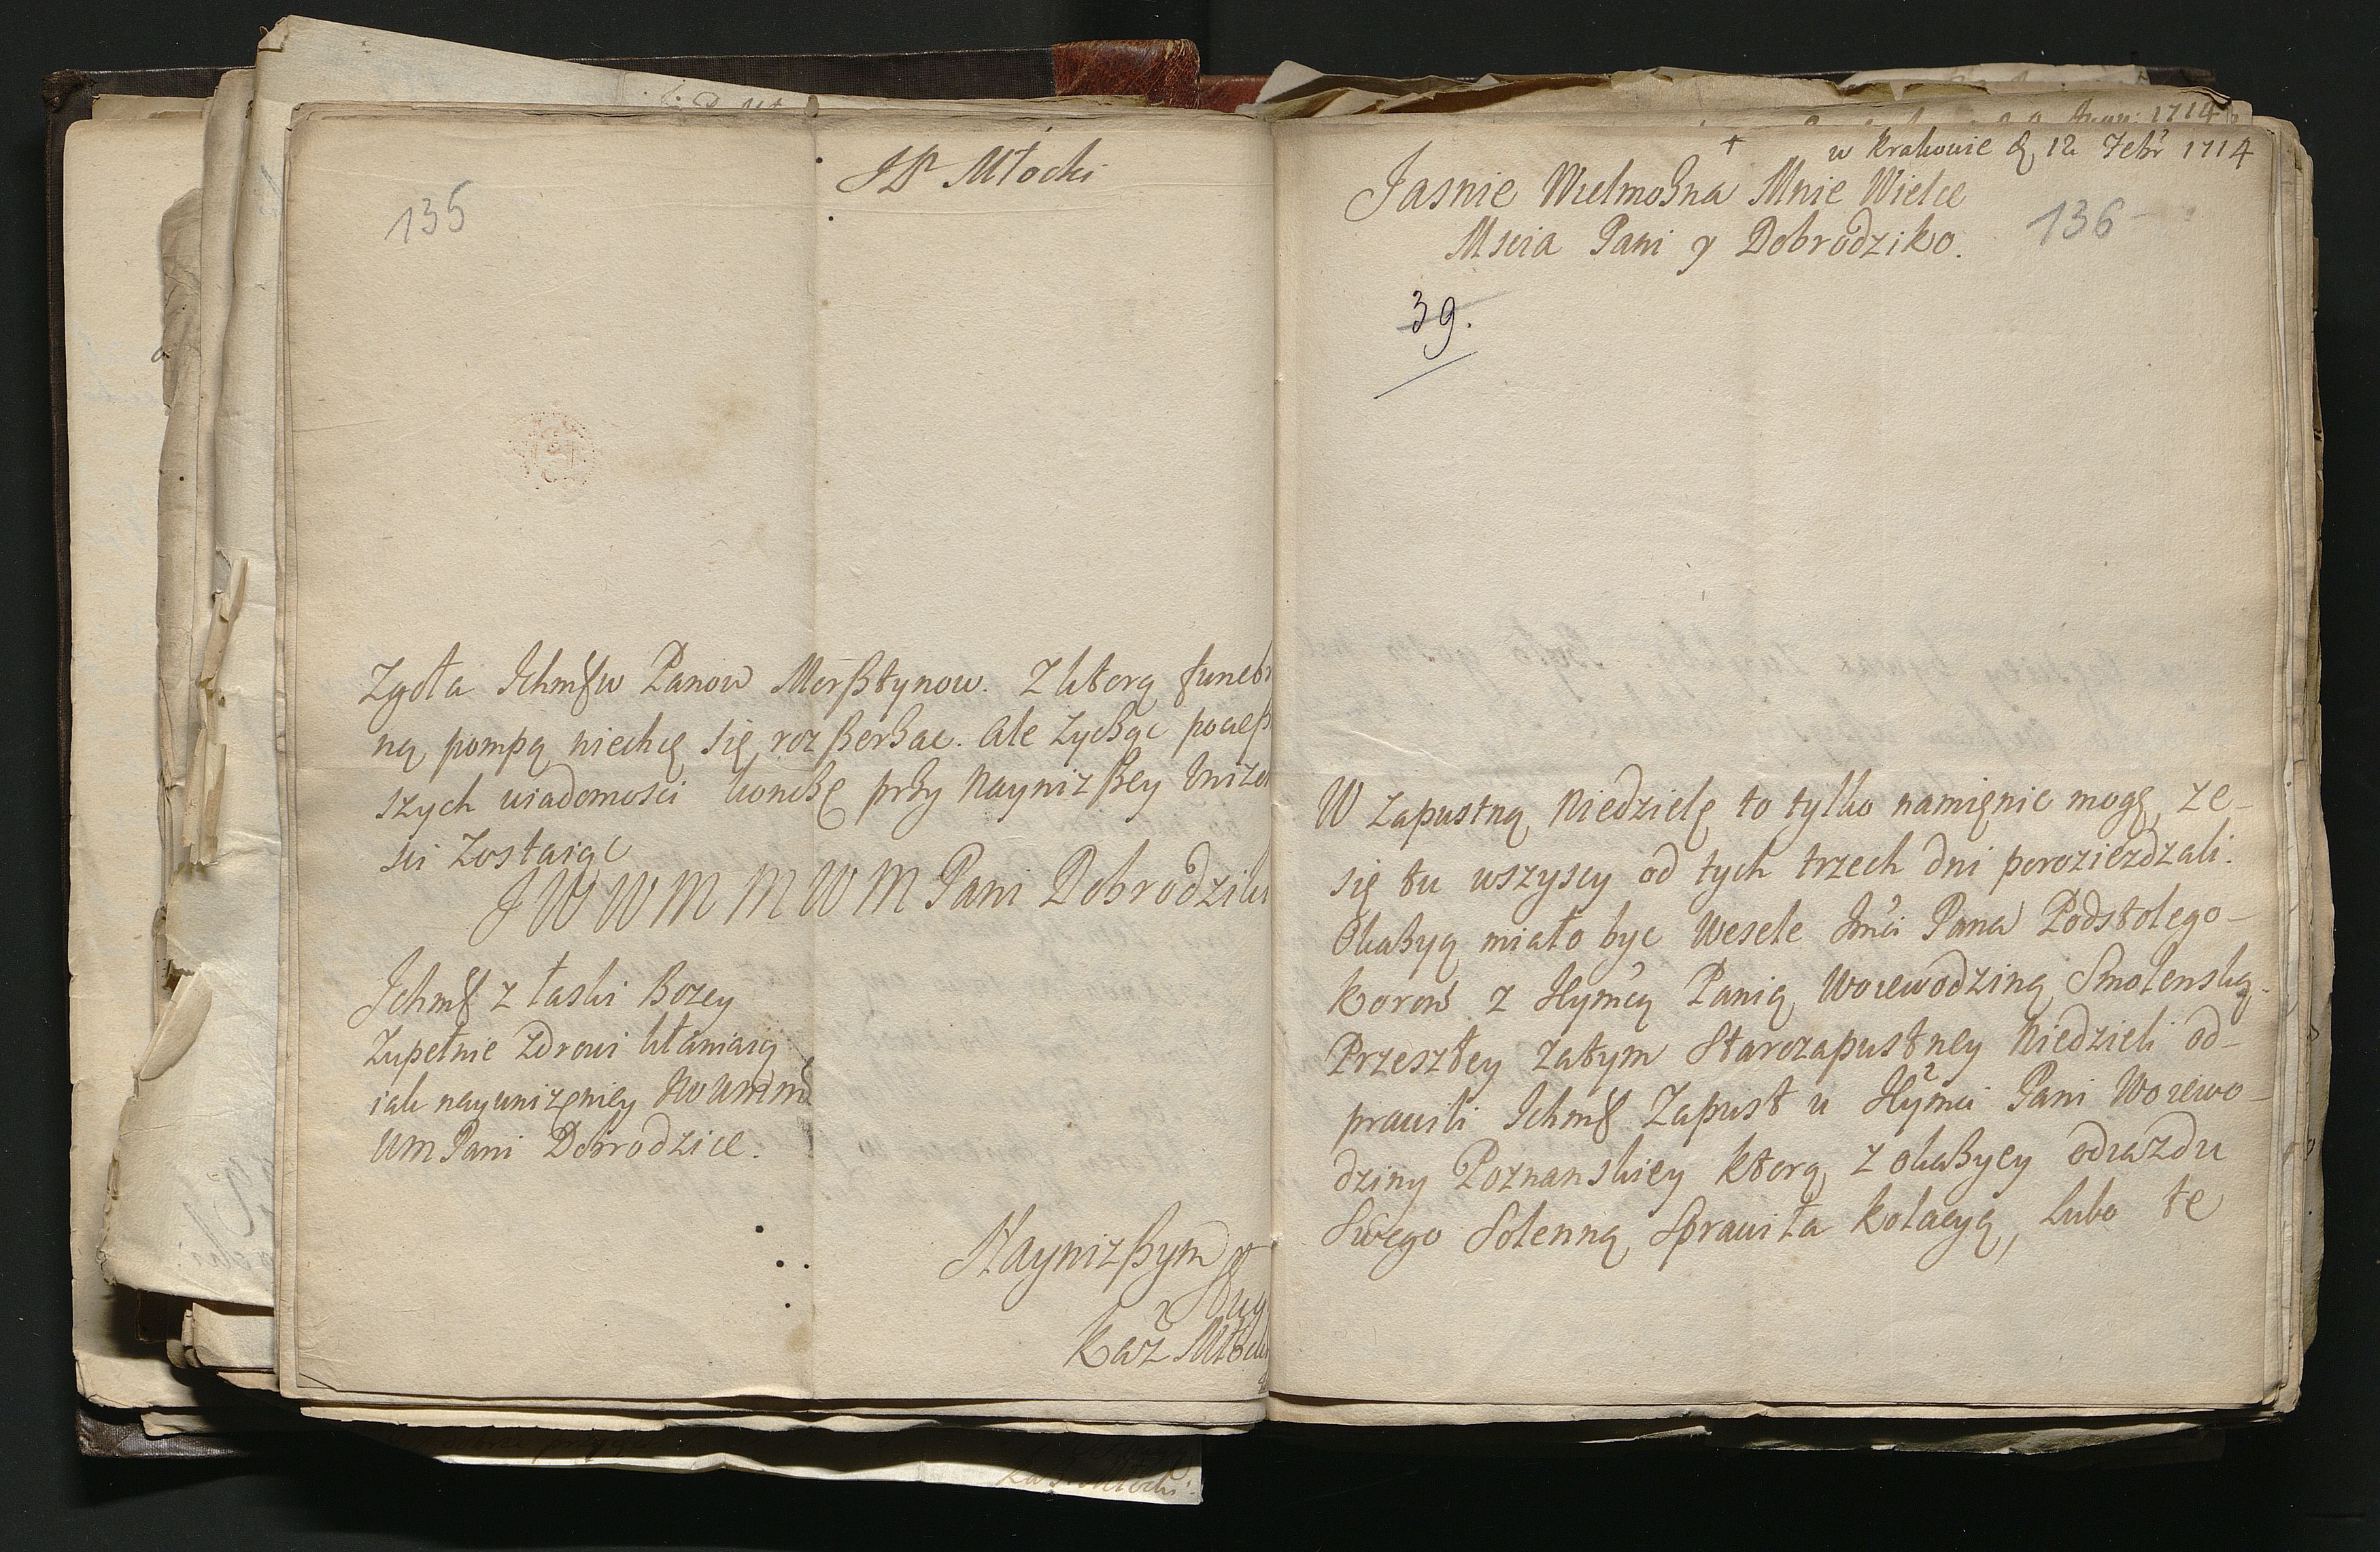 JP Młocki
135
Zgoła Ichmść Panow Morsztynow. Z ktorą funeb
ną pompą niechcę się rozszerzac. Ale zycząc pociesz
szych wiadomosci koncżę przy Naynizszey Vnizo
sci Zostaiąc
J W W M M W M Pani Dobrodziki
Ichmść z łaski Bozey
Zupełnie Zdrowi kłaniaią
iak nayunizęniey
WM Pani Dobrodzice.
Naynizszym
Sług
Kaz Młocki
1714
w Krakowie d 12 Febr 1714
Jasnie Wielmozna Mnie Wielce
Mscia Pani y Dobrodziko.
136
39.
W zapustną Niedzielę to tylko namięnic mogę, ze
się tu wszyscy od tych trzech dni poroziezdzali.
Okazyą miało byc Wesele Jmći Pana Podstolego
Koron z Jeymcą Panią Woiewodziną Smolenską.
Przeszłey zatym Starozapustney Niedzieli od-
prawili Ichmść Zapust u Jeymci Pani Woiewo-
dziny Poznanskiey ktorą z okazyey odiazdu
Swego Solenną Sprawiła kolacyą, lubo te